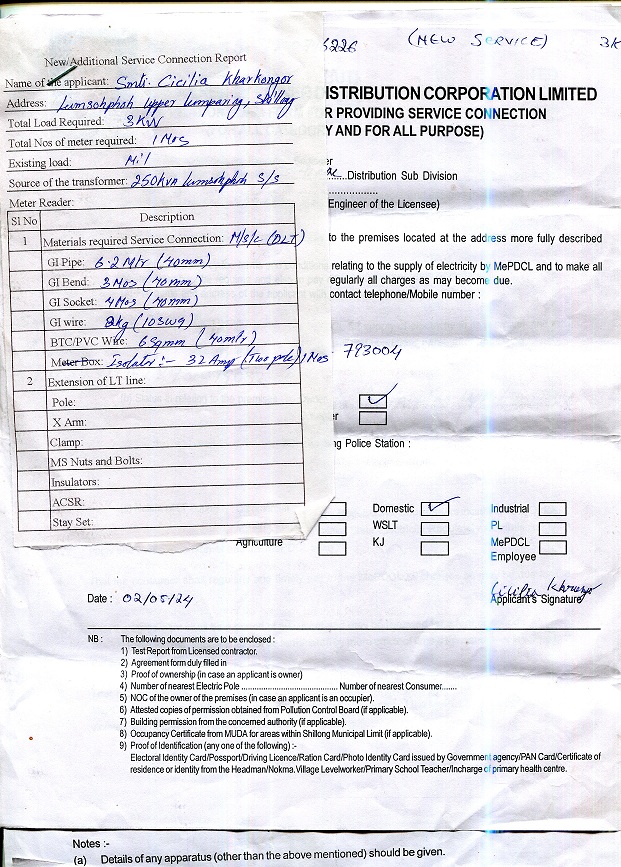 New/Additional Service Connection Report
Name of the applicant: Smti. Cicilia Kharkongor
Address: Lumsohphoh Upper Lumparing, Shillong
Total Load Required: 3KW
Total Nos of meter required: 1 Nos
Existing load: Nil
Source of the transformer: 250KVA Lumsohphoh S/S
Meter Reader:
Sl No Description
1 Materials required Service Connection: M/S/C (DLT)
GI Pipe: 6.2 Mtr (40mm)
GI Bend: 3 Nos (40mm)
GI Socket: 4 Nos (40mm)
GI wire: 2kg (10SWG)
BTC/PVC Wire: 6 Sqmm (40mtr)
Meter Box: Isolator :- 32 Amp (Two pole) 1 Nos
2 Extension of LT line:
Pole:
X Arm:
Clamp:
MS Nuts and Bolts:
Insulators:
ACSR:
Stay Set:
5226 (NEW SERVICE) 3K
ISTRIBUTION CORPORATION LIMITED
R PROVIDING SERVICE CONNECTION
Y AND FOR ALL PURPOSE)
er
Distribution Sub Division
Engineer of the Licensee)
to the premises located at the address more fully described
relating to the supply of electricity by MePDCL and to make all
egularly all charges as may become due.
contact telephone/Mobile number :
793004
er
ng Police Station :
Domestic Industrial
WSLT PL
Agriculture KJ MePDCL
Employee
Date : 02/05/24
Applicant's Signature
NB : The following documents are to be enclosed :
1) Test Report from Licensed contractor.
2) Agreement form duly filled in
3) Proof of ownership (in case an applicant is owner)
4) Number of nearest Electric Pole ..................................... Number of nearest Consumer.......
5) NOC of the owner of the premises (in case an applicant is an occupier).
6) Attested copies of permission obtained from Pollution Control Board (if applicable).
7) Building permission from the concerned authority (if applicable).
8) Occupancy Certificate from MUDA for areas within Shillong Municipal Limit (if applicable).
9) Proof of Identification (any one of the following) :-
Electoral Identity Card/Possport/Driving Licence/Ration Card/Photo Identity Card issued by Government agency/PAN Card/Certificate of
residence or identity from the Headman/Nokma.Village Levelworker/Primary School Teacher/Incharge of primary health centre.
Notes :-
(a) Details of any apparatus (other than the above mentioned) should be given.